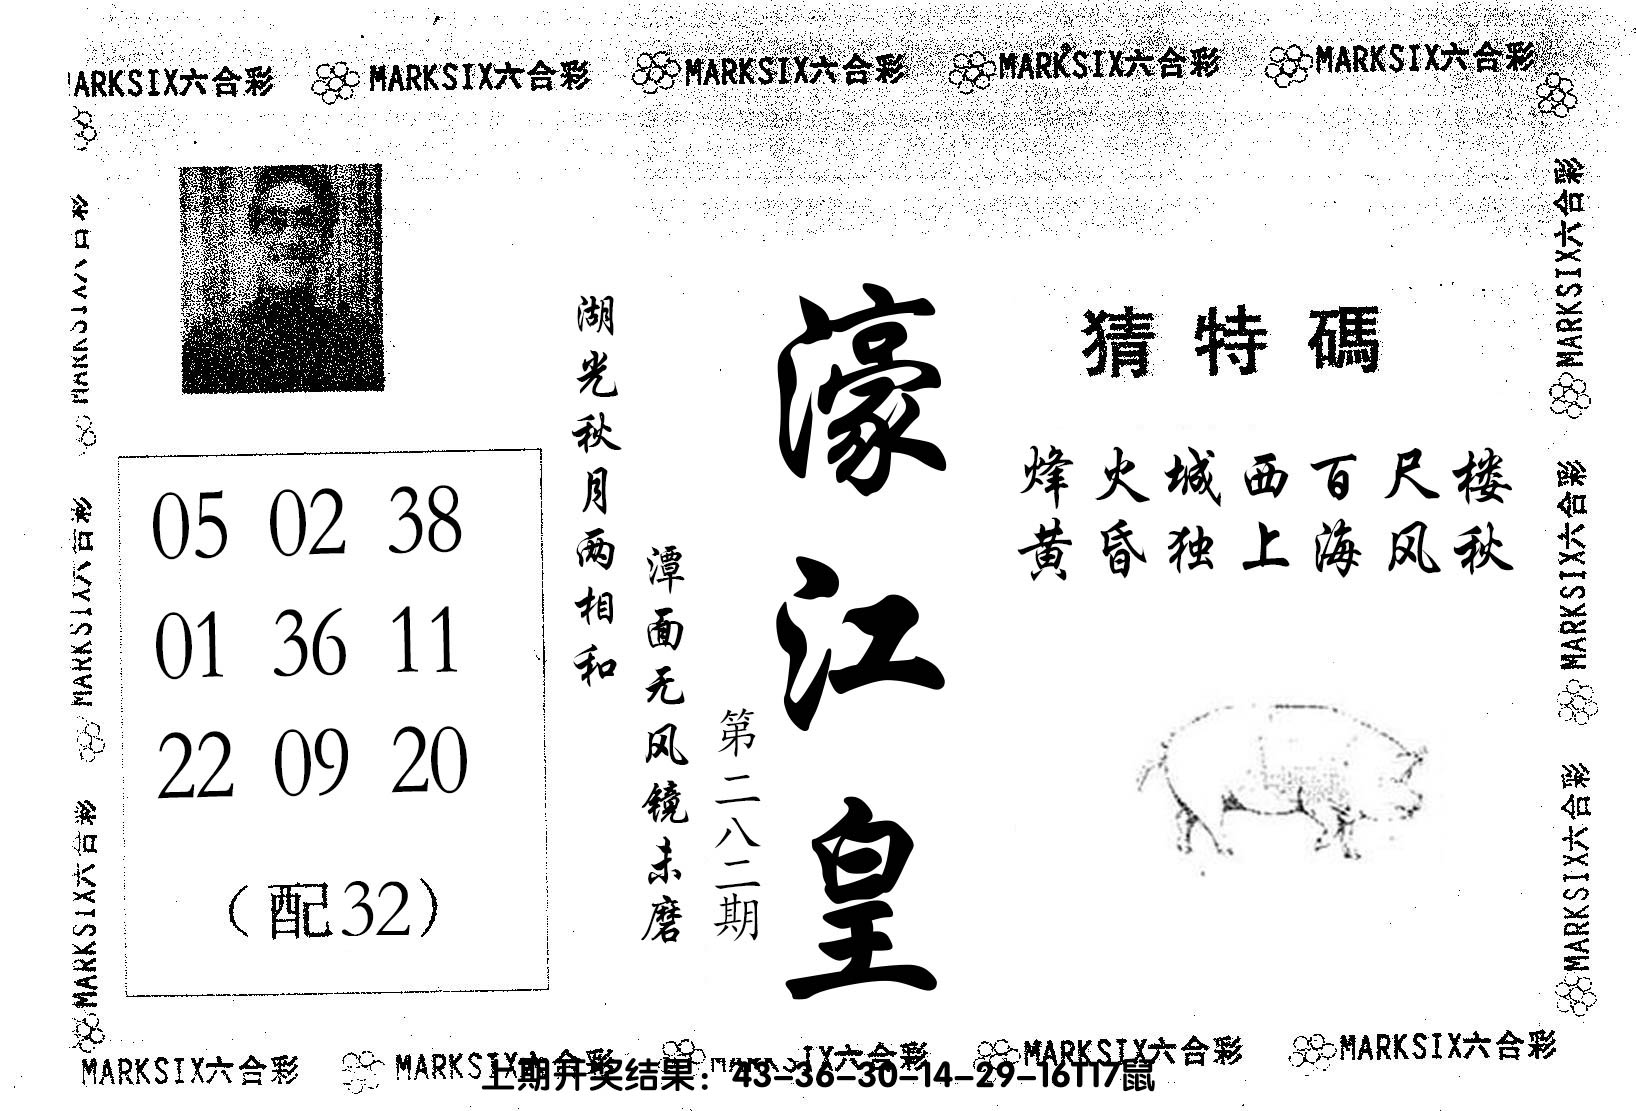 MARKSIX六合彩 MARKSIX六合彩 MARKSIX六合彩 MARKSIX六合彩 MARKSIX六合彩
濠江皇
猜特碼
烽火城西百尺楼
黄昏独上海风秋
湖光秋月两相和
潭面无风镜未磨
第二八二期
05 02 38
01 36 11
22 09 20
(配32)
MARKSIX六合彩
MARKSIX六合彩
MARKSIX六合彩
MARKSIX六合彩
MARKSIX六合彩
MARKSIX六合彩
MARKSIX六合彩 MARKSIX六合彩 MARKSIX六合彩 MARKSIX六合彩
上期开奖结果：43-36-30-14-29-16T17鼠